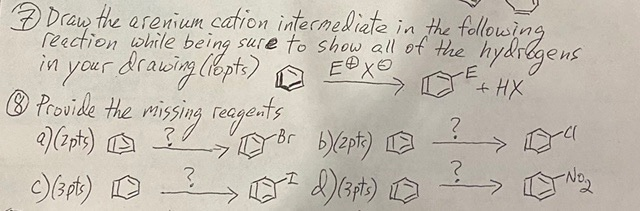 ⑦ Draw the arenium cation intermediate in the following
reaction while being sure to show all of the hydrogens
in your drawing (10pts) E⊕X⊖ E + HX
⑧ Provide the missing reagents
a) (2pts) ? Br b) (2pts) ? Cl
c) (3pts) ? I d) (3pts) ? NO2